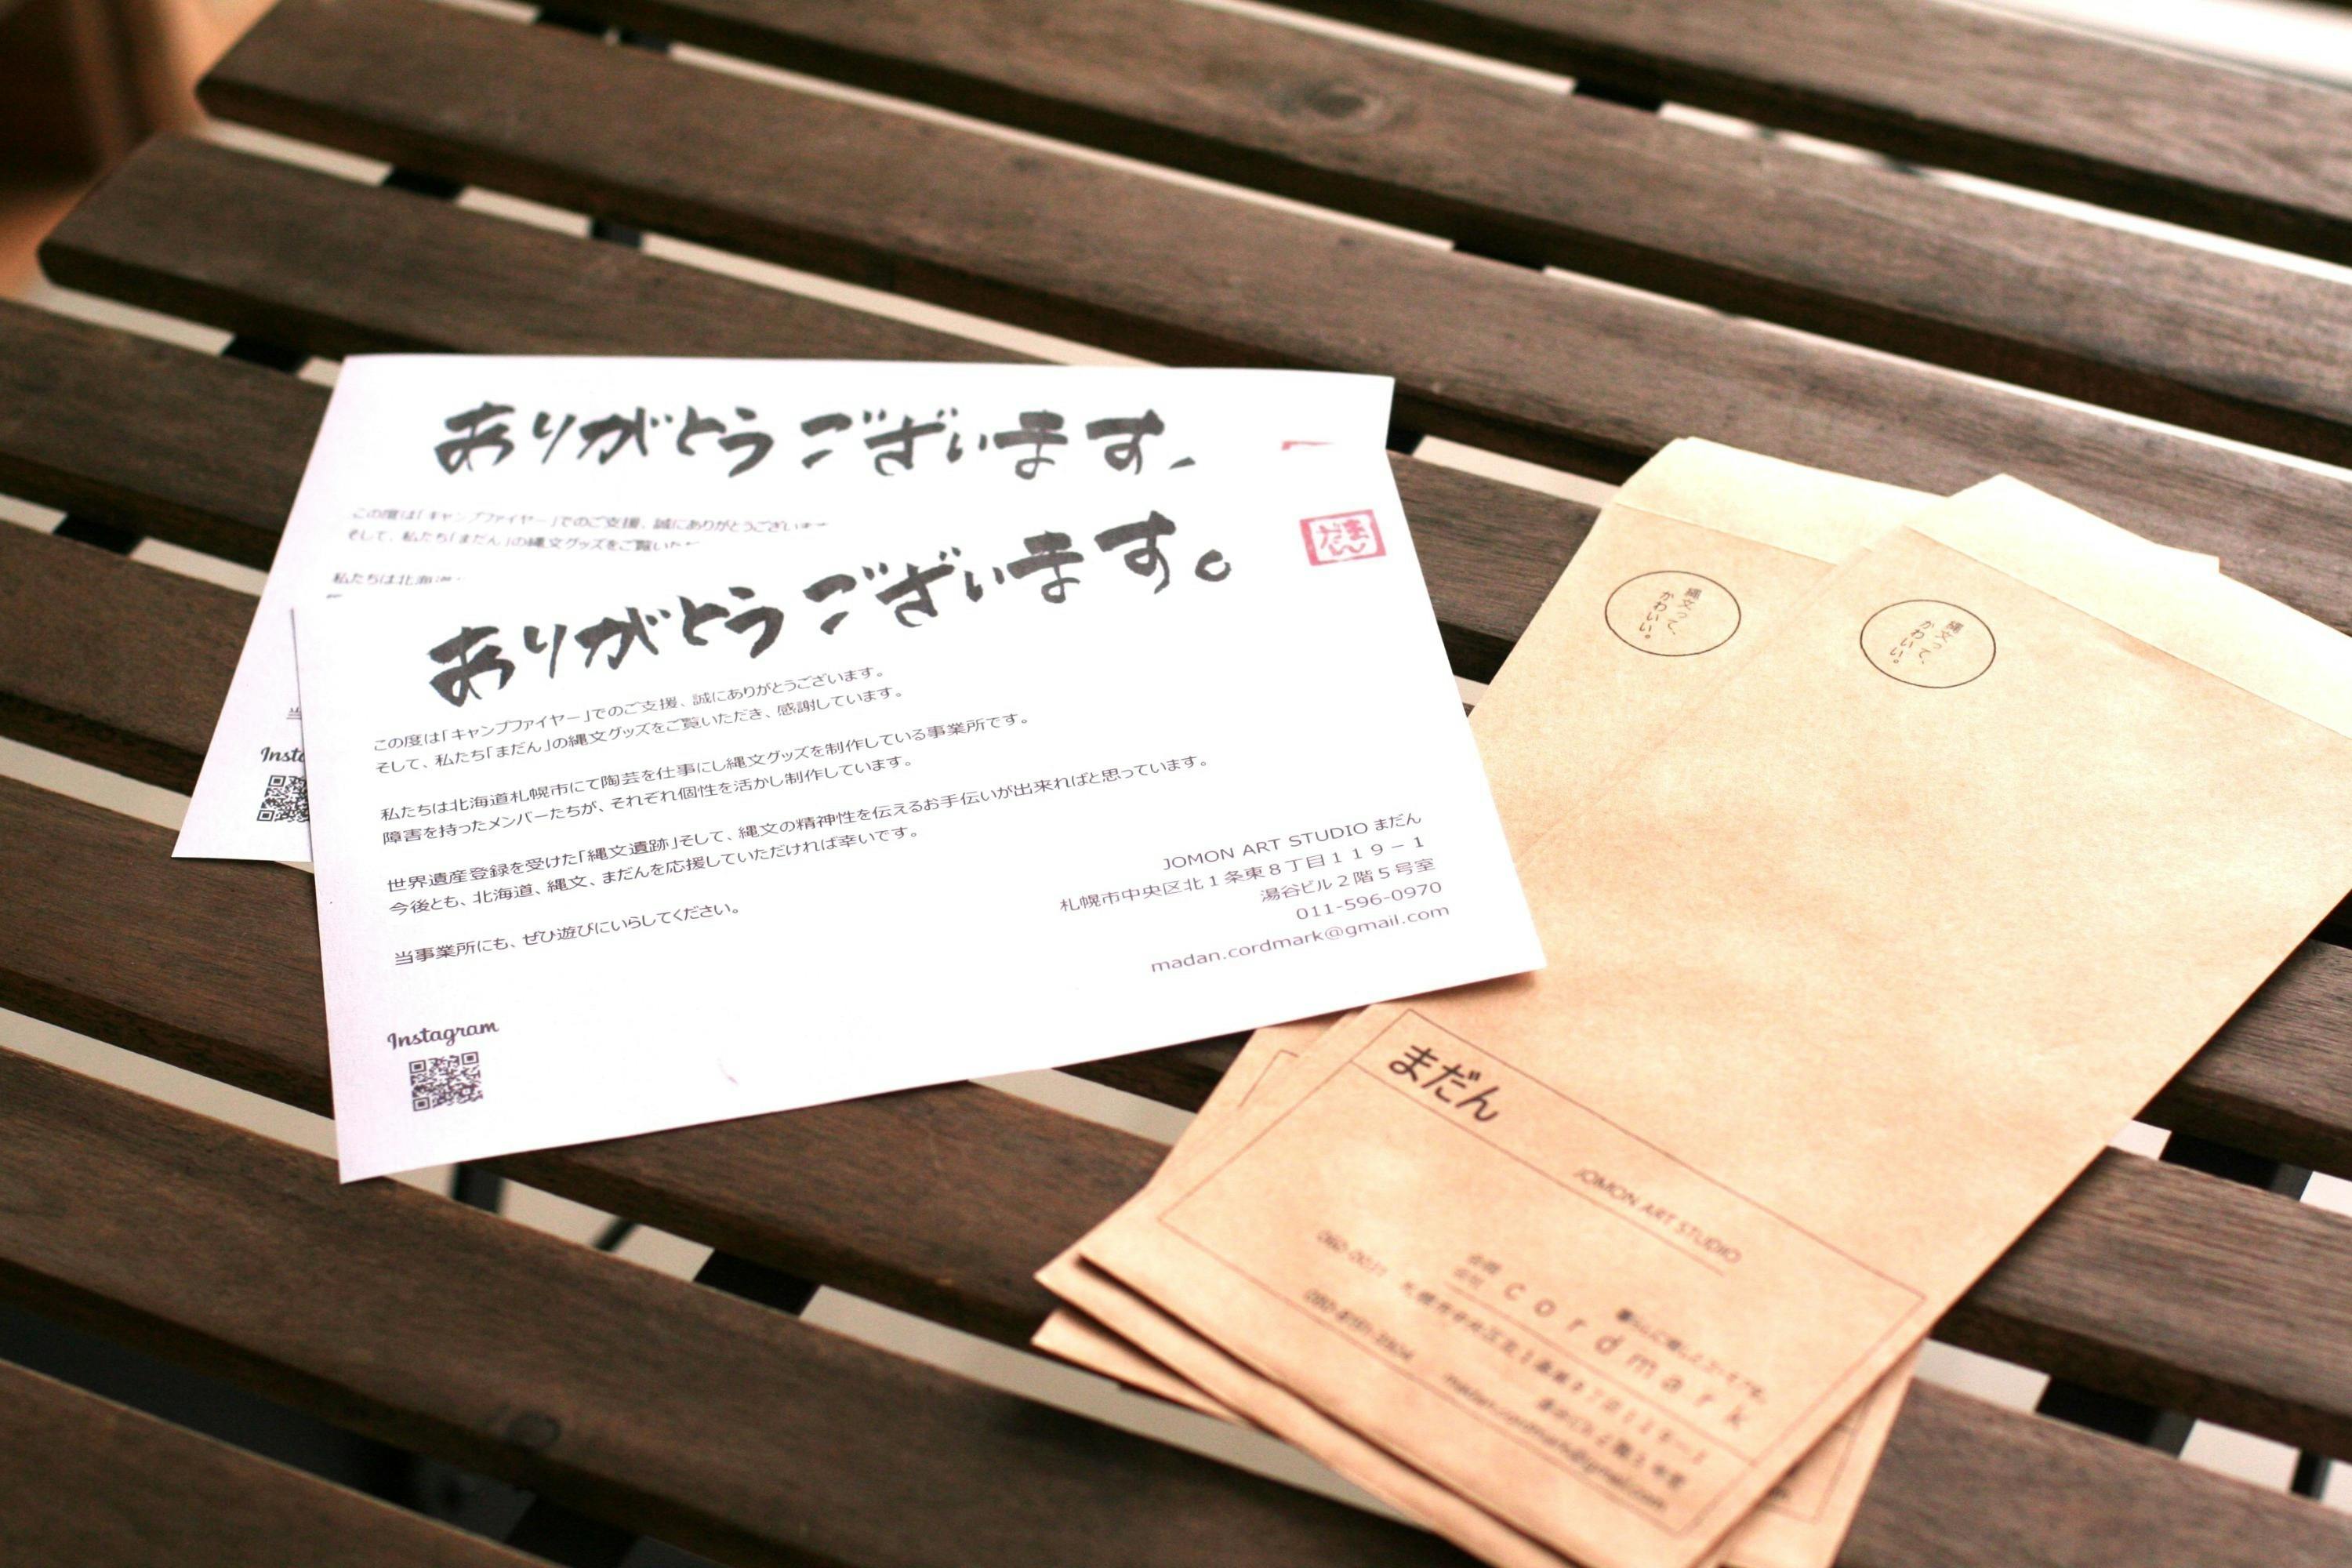 ありがとうございます
この度は「キャンプファイヤー」でのご支援、誠にありがとうございます
そして、私たち「まだん」の縄文グッズをご覧いただ
私たちは北海道
当
Insta
ありがとうございます。
まだん
この度は「キャンプファイヤー」でのご支援、誠にありがとうございます。
そして、私たち「まだん」の縄文グッズをご覧いただき、感謝しています。
私たちは北海道札幌市にて陶芸を仕事にし縄文グッズを制作している事業所です。
障害を持ったメンバーたちが、それぞれ個性を活かし制作しています。
世界遺産登録を受けた「縄文遺跡」そして、縄文の精神性を伝えるお手伝いが出来ればと思っています。
今後とも、北海道、縄文、まだんを応援していただければ幸いです。
当事業所にも、ぜひ遊びにいらしてください。
JOMON ART STUDIO まだん
札幌市中央区北１条東８丁目１１９－１
湯谷ビル２階５号室
011-596-0970
madan.cordmark@gmail.com
Instagram
縄文って、
かわいい。
縄文って、
かわいい。
まだん
JOMON ART STUDIO
合同
会社 cordmark
060-0031 札幌市中央区北１条東８丁目１１９－１
madan.cordmark@gmail.com